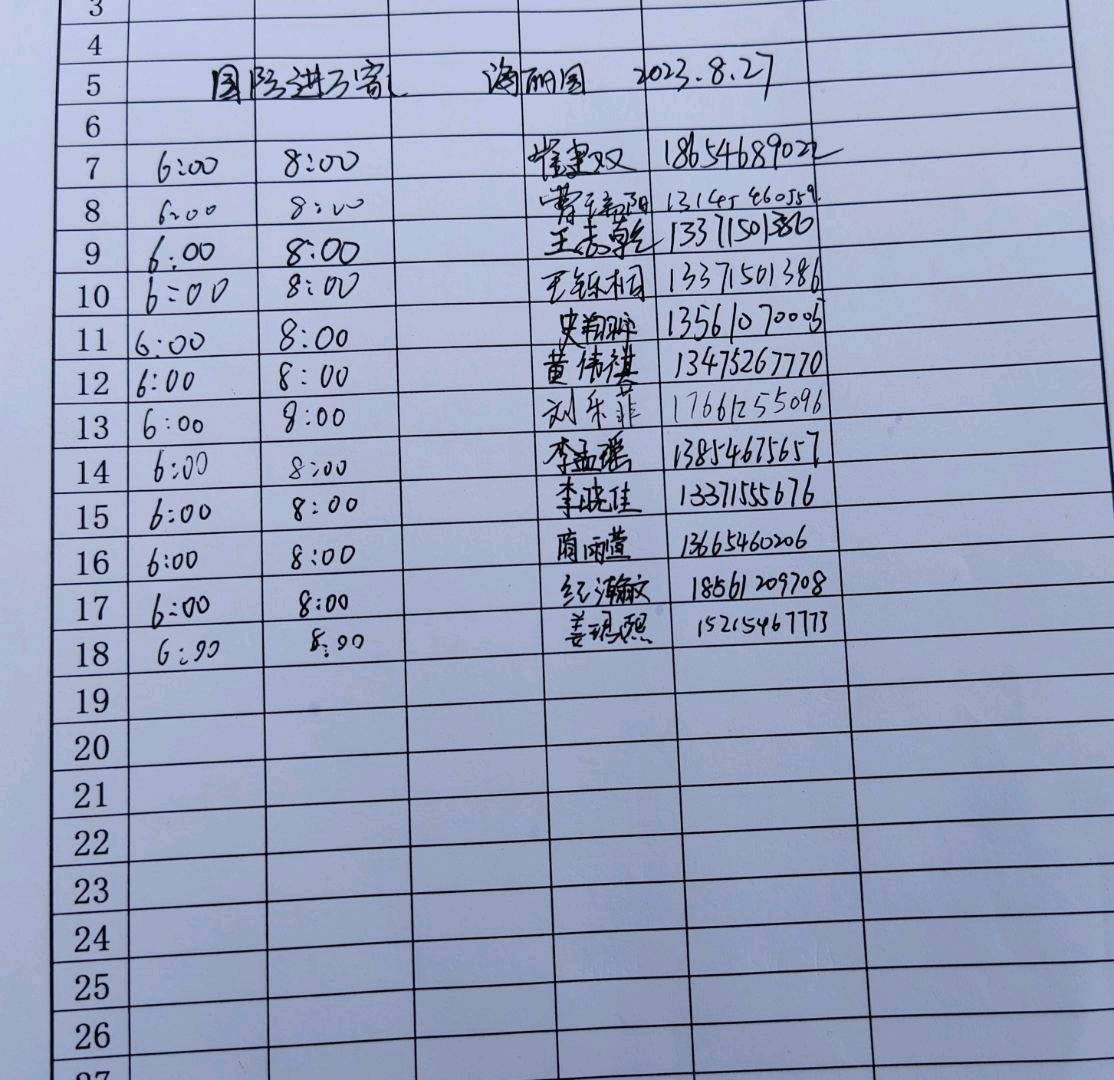 3
4
5 国际进万家 海丽园 2023.8.27
6
7 6:00 8:00 崔建双 18654689022
8 6:00 8:00 曹 阳 13145460559
9 6:00 8:00 王志卓 13371501386
10 6:00 8:00 王铄相 13371501386
11 6:00 8:00 史翔 13561070005
12 6:00 8:00 黄伟祺 13475267770
13 6:00 8:00 刘乐菲 17661255096
14 6:00 8:00 李孟瑶 13854675657
15 6:00 8:00 李晓佳 13371555676
16 6:00 8:00 雨萱 13665460206
17 6:00 8:00 纪瀚文 18561209708
18 6:00 8:00 姜玥熙 15215467773
19
20
21
22
23
24
25
26
27